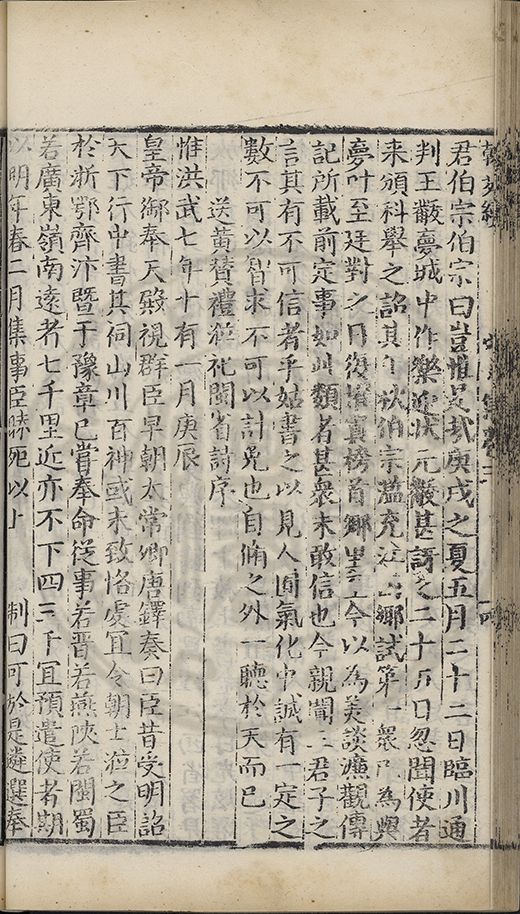 君伯宗伯宗曰豈惟是哉庚戌之夏五月二十二日臨川通
判王黻夢城中作樂迎狀元黻甚訝之二十五日忽聞使者
來頒科舉之詔其年秋伯宗濫充江西鄉試第一衆以為與
夢叶至廷對之日復擢寘榜首鄉里至今以為美談濂觀傳
記所載前定事如此類者甚衆未敢信也今親聞二君子之
言其有不可信者乎姑書之以見人囿氣化中誠有一定之
數不可以智求不可以計免也自脩之外一聽於天而已
送黃贊禮涖祀閩省詩序
惟洪武七年十有一月庚辰
皇帝御奉天殿視群臣早朝太常卿唐鐸奏曰臣昔受明詔
天下行中書其祠山川百神或未致恪處宜令朝士涖之臣
於浙鄂齊汴暨于豫章已嘗奉命從事若晉若燕陜若閩蜀
若廣東嶺南遠者七千里近亦不下四三千宜預遣使者期
以明年春二月集事臣昧死以上 制曰可於是遴選奉